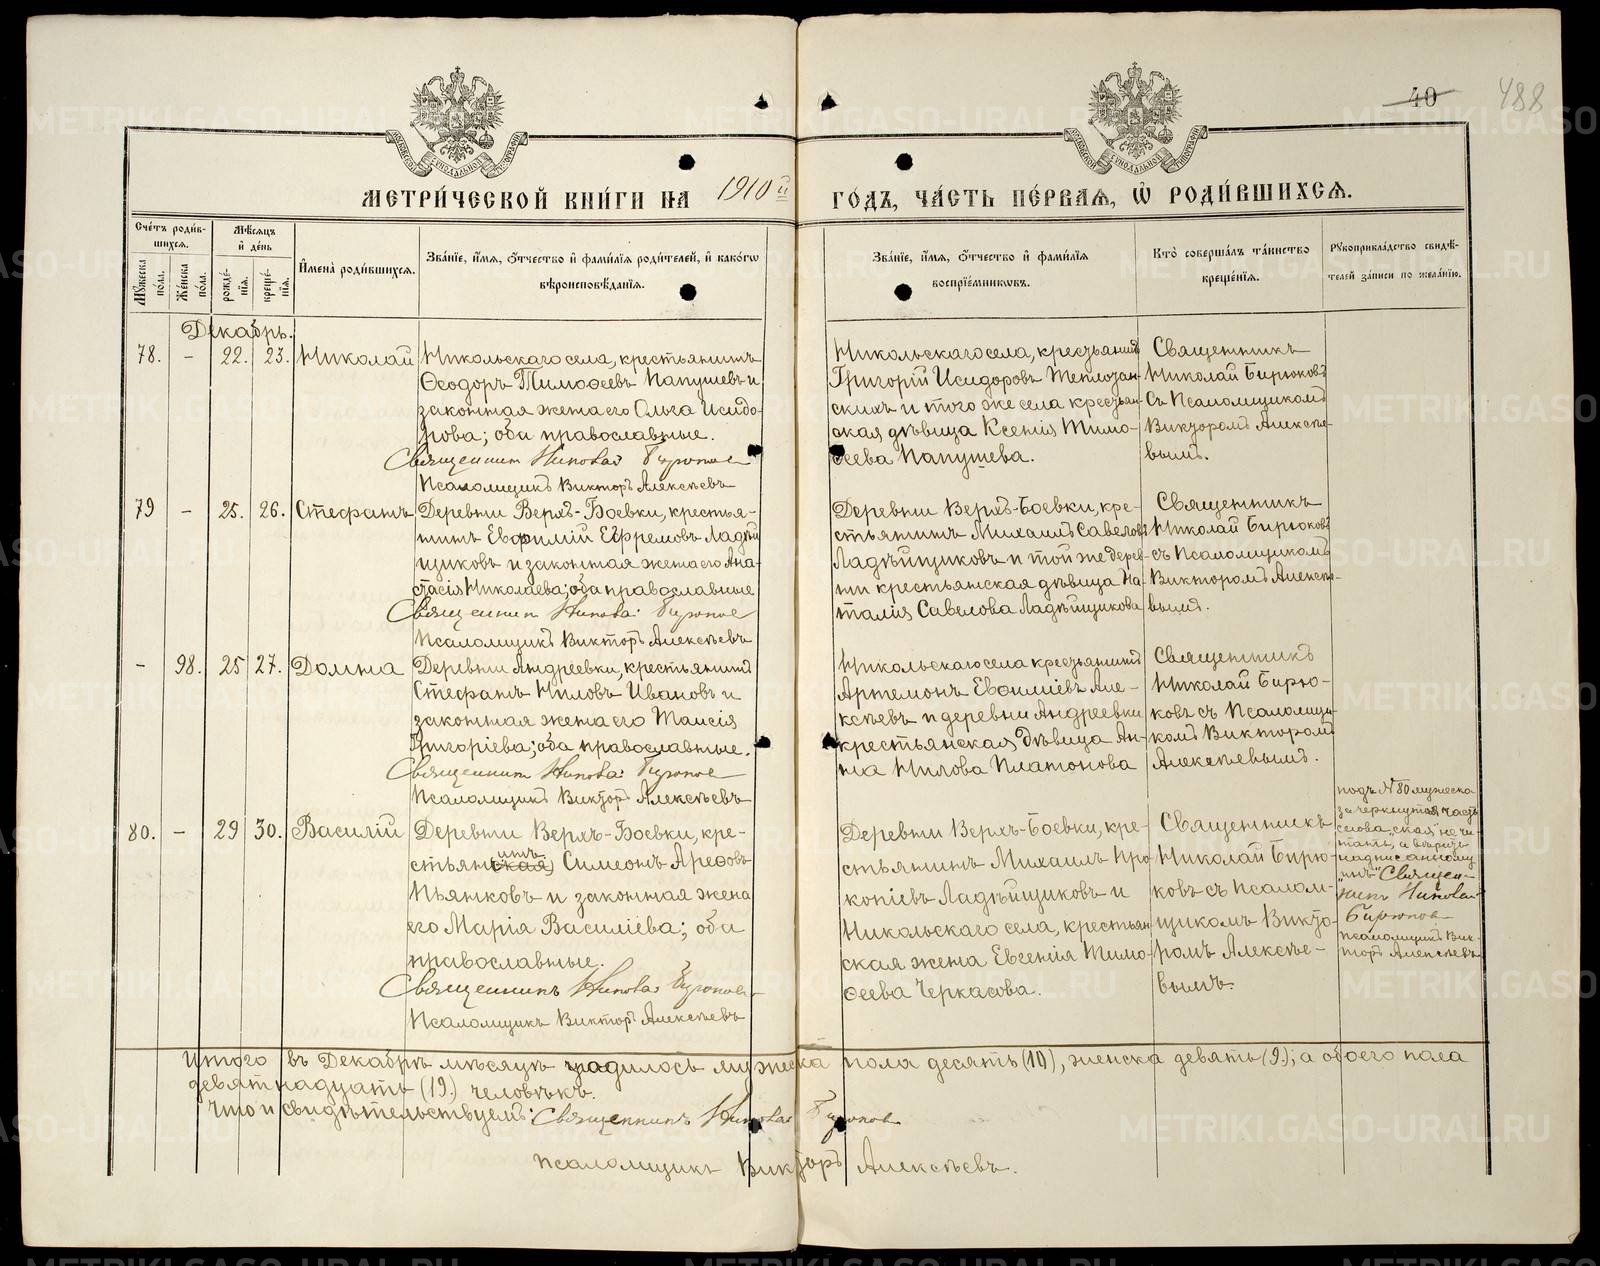 40
488
МЕТРИ́ЧЕСКОЙ КНИ́ГИ НА 1910й ГО́ДЪ, ЧА́СТЬ ПЕ́РВАѦ, Ѡ҆ РОДИ́ВШИХСѦ.
Сче́тъ роди́в-
шихсѧ.
Мꙋ́жеска по́ла.
Же́нска по́ла.
Мѣ́сѧцъ
и҆ де́нь
рожде́-
нїѧ.
креще́-
нїѧ.
И҆мена̀ роди́вшихсѧ.
Зва́нїе, и҆́мѧ, ѻ҆́тчество и҆ фами́лїѧ роди́телей, и҆ како́гѡ
вѣроисповѣ́данїѧ.
Зва́нїе, и҆́мѧ, ѻ҆́тчество и҆ фами́лїѧ
воспрїе́мникѡвъ.
Кто̀ соверша́лъ та́инство
креще́нїѧ.
Рꙋкоприкла́дство свидѣ́-
телей за́писи по жела́нїю.
Декабрь.
78.
-
22.
23.
Николай
Никольскаго села, крестьянинъ
Ѳеодоръ Тимоѳеевъ Папушевъ и
законная жена его Ольга Исидо-
рова; оба православные.
Священникъ Николай Бирюковъ
Псаломщикъ Викторъ Алексѣевъ
Никольскаго села, крестьянинъ
Григорій Исидоровъ
скихъ и того же села крестьян-
ская дѣвица Ксенія Тимо-
ѳеева Папушева.
Священникъ
Николай Бирюковъ
Съ Псаломщикомъ
Викторомъ Алексѣе-
вымъ.
79
-
25.
26.
Стефанъ
Деревни Верхъ-Боевки, крестья-
нинъ Евѳимій Ефремовъ Ладѣй
щиковъ и законная жена его Ана-
стасія Николаева; оба православные
Священникъ Николай Бирюковъ
Псаломщикъ Викторъ Алексѣевъ
Деревни Верхъ-Боевки, кре-
стьянинъ Михаилъ Савеловъ
Ладѣйщиковъ и той же дерев-
ни крестьянская дѣвица На-
талія Савелова Ладѣйщикова
Священникъ
Николай Бирюковъ
съ Псаломщикомъ
Викторомъ Алексѣе-
вымъ.
-
98.
25
27.
Домна
Деревни Андреевки, крестьянинъ
Стефанъ Ниловъ Ивановъ и
законная жена его Таисія
Григоріева; оба православные.
Священникъ Николай Бирюковъ
Псаломщикъ Викторъ Алексѣевъ
Никольскаго села крестьянинъ
Артемонъ Евѳиміевъ Але-
ксѣевъ и деревни Андреевки
крестьянская дѣвица Ан-
на Нилова Платонова
Священникъ
Николай Бирю-
ковъ съ Псаломщи-
комъ Викторомъ
Алексѣевымъ.
80.
-
29
30.
Василій
Деревни Верхъ-Боевки, кре-
стьянская инъ Симеонъ Арефовъ
Пьянковъ и законная жена
его Марія Василіева; оба
православные.
Священникъ Николай Бирюковъ
Псаломщикъ Викторъ Алексѣевъ
Деревни Верхъ-Боевки, кре-
стьянинъ Михаилъ Про
копіевъ Ладѣйщиковъ и
Никольскаго села, крестьян
ская жена Евгенія Тимо-
ѳеева Черкасова.
Священникъ
Николай Бирю-
ковъ съ Псалом-
щикомъ Викто-
ромъ Алексѣе-
вымъ.
подъ №80 мужеска
зачеркнутая часть
слова "ская" не чи-
тать, а вверху
надписанному
"инъ" Священ-
никъ Николай
Бирюковъ
Псаломщикъ Вик-
торъ Алексѣевъ
Итого въ Декабрѣ мѣсяцѣ родилось мужеска пола десять (10), женска девять (9.); а обоего пола
девятнадцать (19.) человѣкъ.
Что и свидѣтельствуемъ: Священникъ Николай Бирюковъ
Псаломщикъ Викторъ Алексѣевъ.